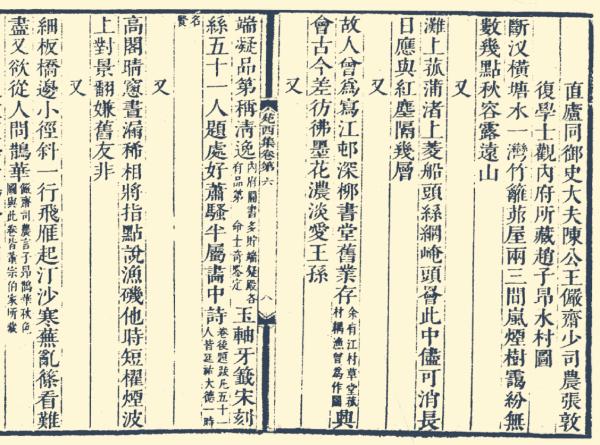 直廬同御史大夫陳公王儼齋少司農張敦
復學士觀內府所藏趙子昂水村圖
斷汊橫塘水一灣竹籬茆屋兩三間嵐煙樹靄紛無
數幾點秋容露遠山
又
灘上菰蒲渚上菱船頭絲網崦頭罾此中儘可消長
日應與紅塵隔幾層
又
故人曾為寫江邨深柳書堂舊業存余有江村草堂菰村耦漁曾為作圖興
會古今差彷彿墨花濃淡愛王孫
又
苑西集卷第六 八
端凝品第稱清逸內府圖書多貯端凝殿各有品第 命士奇鑒定玉軸牙籤宋刻
絲五十一人題處好蕭騷半屬畫中詩卷後題跋凡五十一人皆延祐大德一時
名賢
又
高閣晴窻晝漏稀相將指點說漁磯他時短櫂煙波
上對景翻嫌舊友非
又
細板橋邊小徑斜一行飛雁起汀沙寒蕪亂篠看難
盡又欲從人問鵲華儼齋司農言子昂鵲華秋色圖與此卷皆董宗伯家所藏